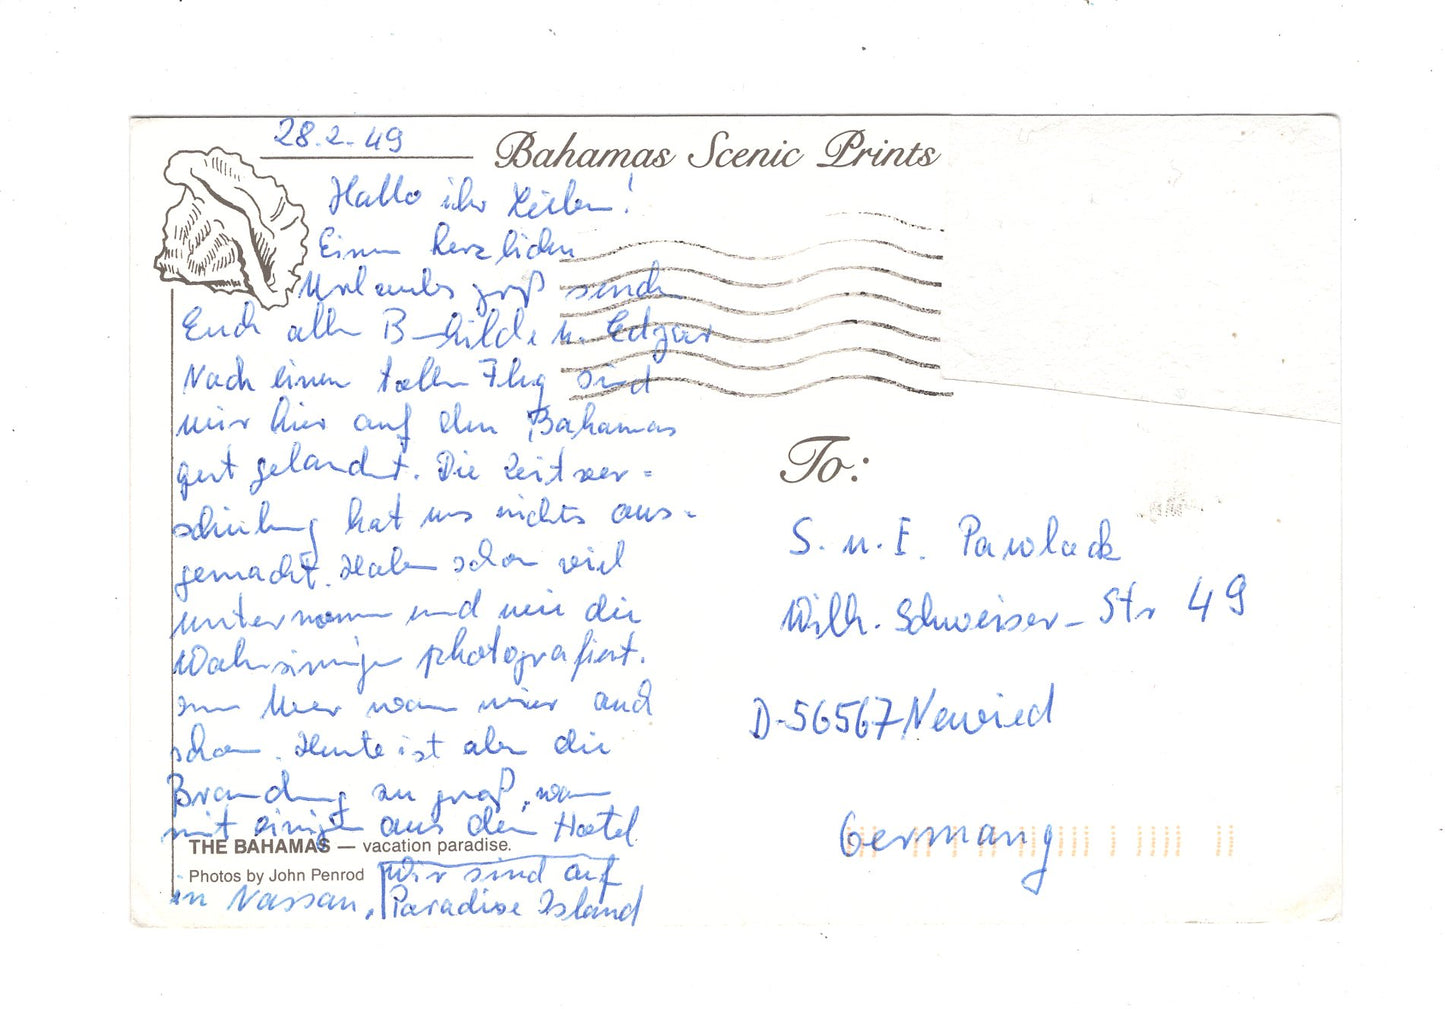 28.2.49
Bahamas Scenic Prints
Hallo ihr Lieben!
Einen herzlichen
Urlaubsgruß senden
Euch allen B-hilde u. Edgar
Nach einen tollen Flug sind
wir hier auf den Bahamas
gut gelandet. Die Zeitver=
schiebung hat uns nichts aus-
gemacht. Haben schon viel
unternommen und wie die
Wahnsinnigen photografiert.
Im Meer waren wir auch
schon. Heute ist aber die
Brandung zu groß, waren
mit einigen aus dem Hotel
THE BAHAMAS — vacation paradise.
Photos by John Penrod
in Nassau,
Wir sind auf
Paradise Island
To:
S. u. E. Pawlack
Wilh. Schweiser-Str 49
D-56567 Neuwied
Germany